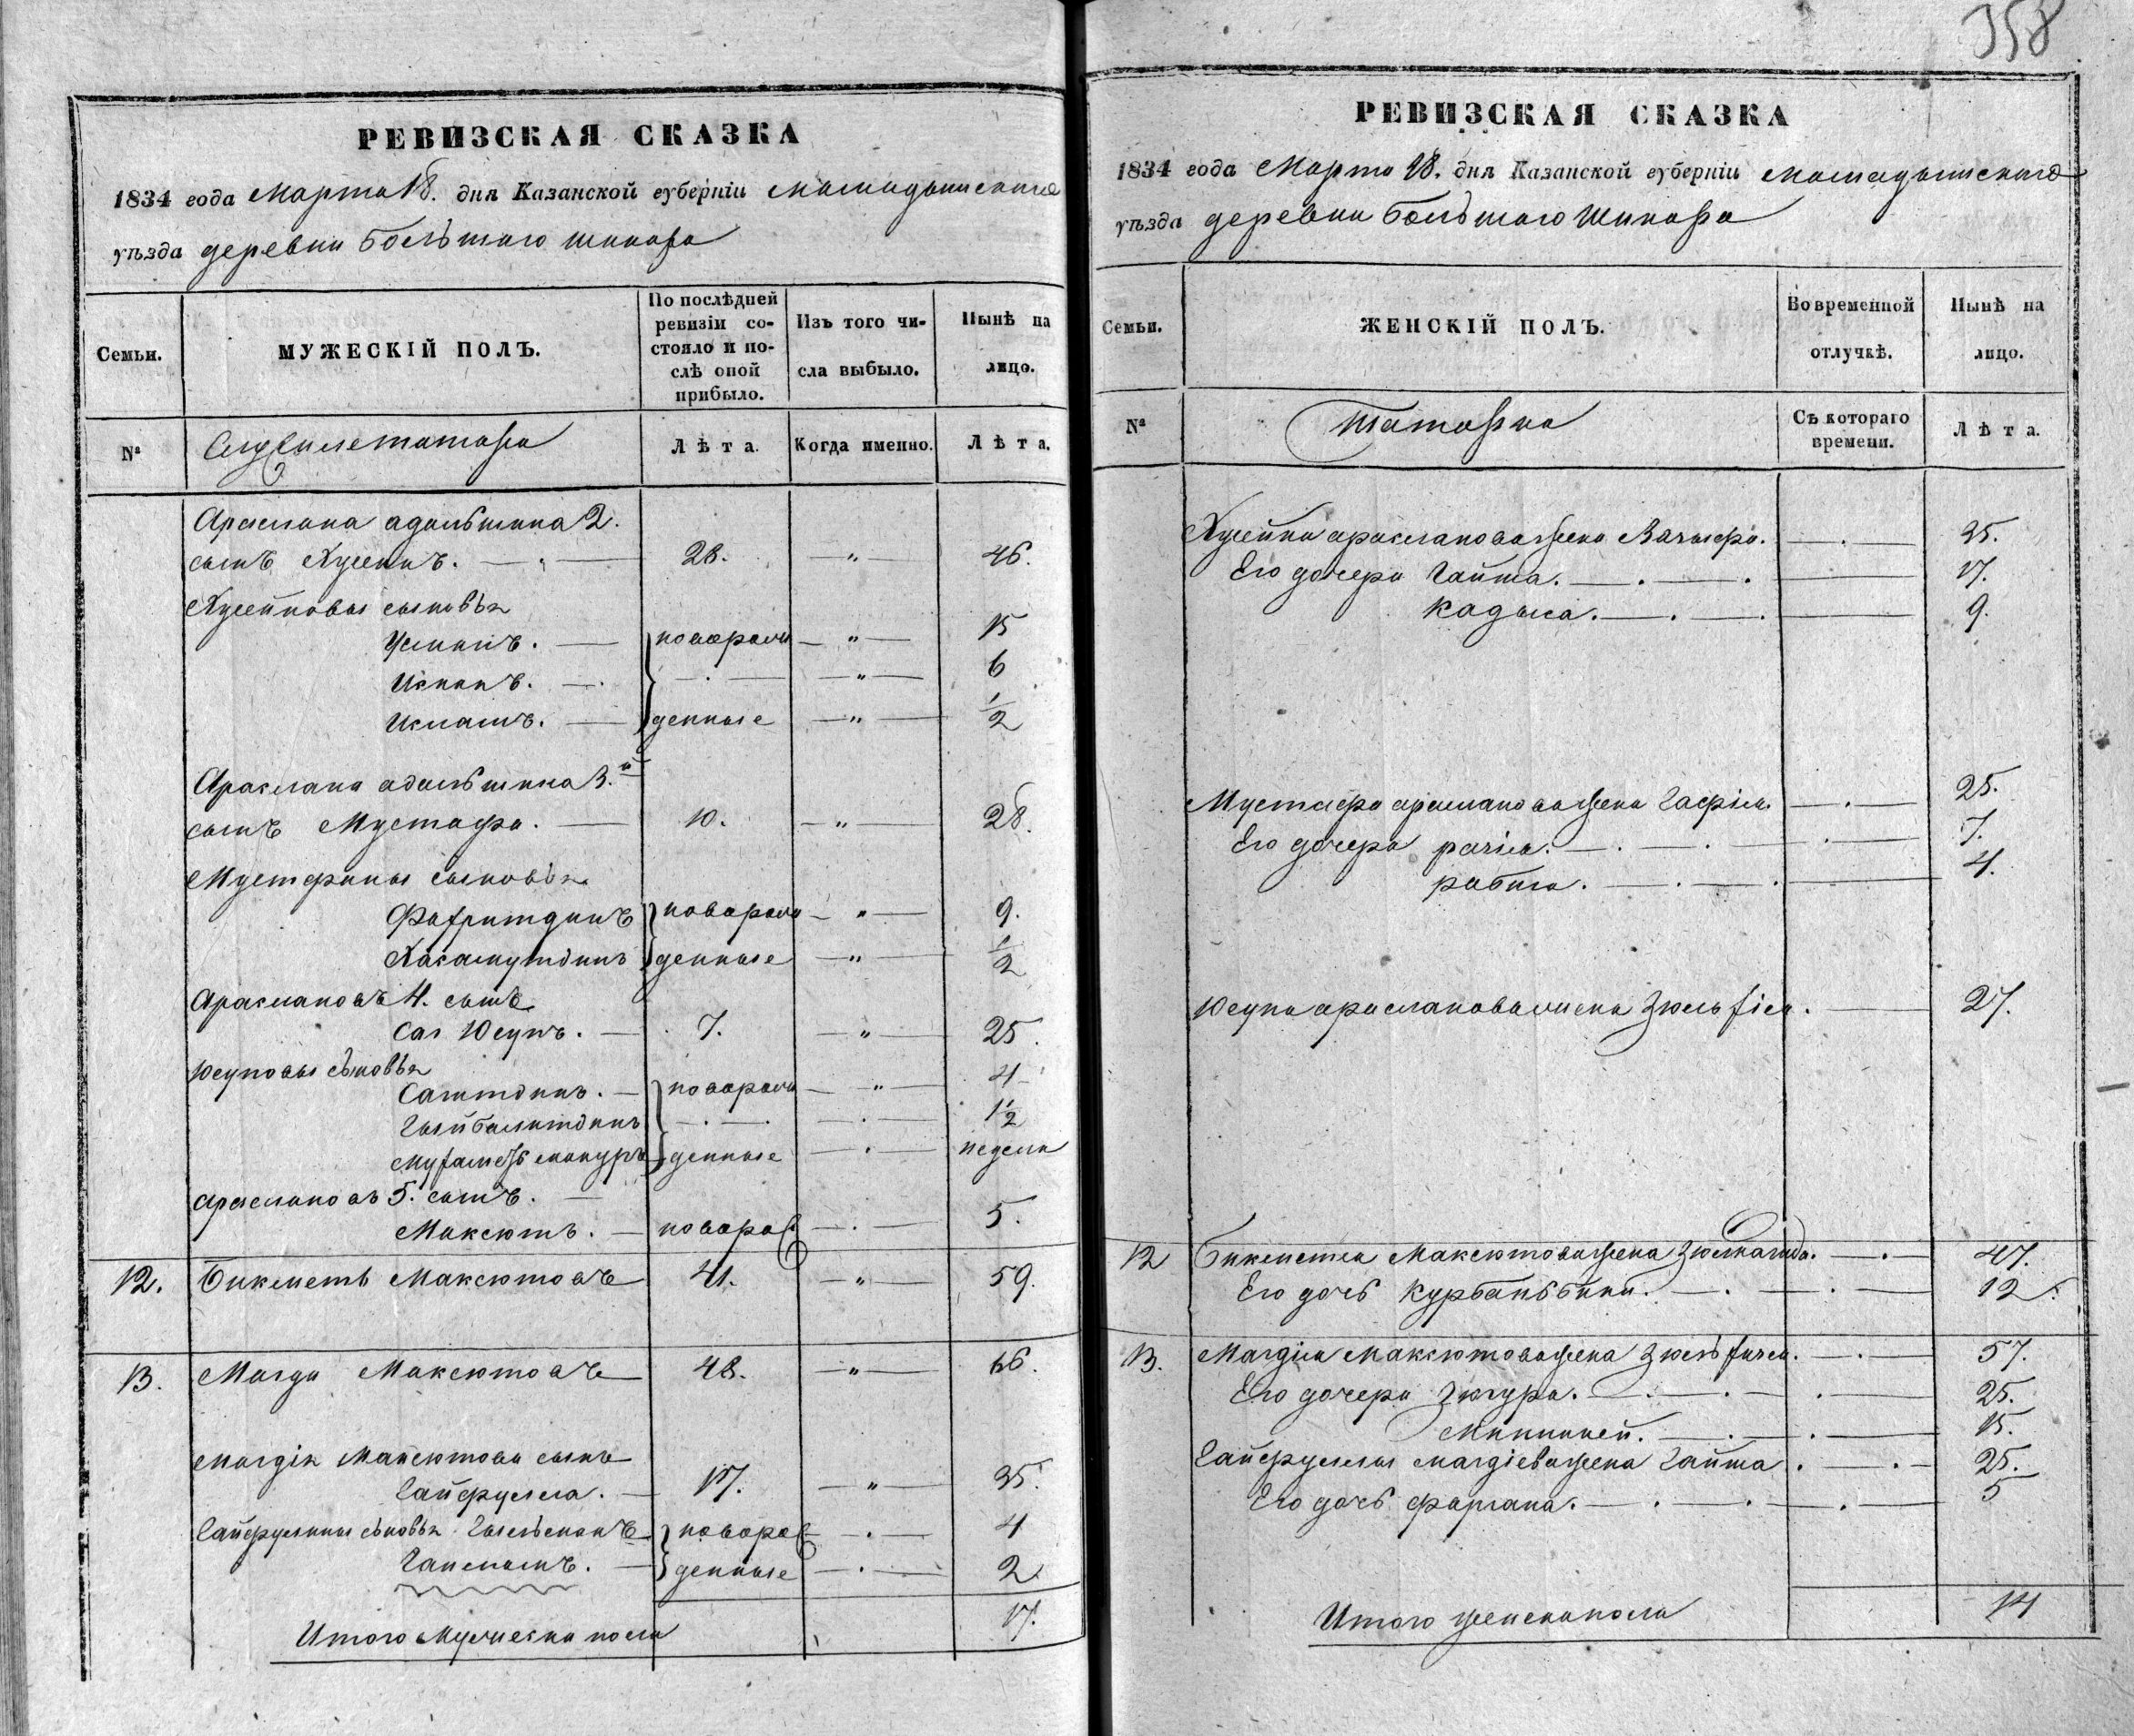 РЕВИЗСКАЯ СКАЗКА
1834 года Марта 18. дня Казанской губерніи Мамадышскаго
уѣзда деревни Большаго Шинара
Семьи.
МУЖЕСКІЙ ПОЛЪ.
По послѣдней ревизіи состояло и послѣ оной прибыло.
Изъ того числа выбыло.
Нынѣ на лицо.
№
Лѣта.
Когда именно.
Лѣта.
Араслана адальшина 2.
сынъ Хусеинъ. 28. " 46.
Хусейновы сыновья
Усманъ. новорож " 15
Исханъ. " 6
Исматъ. денные " 1/2
Араслана адальшина 3.й
сынъ Мустафа. 10. " 28.
Мустафины сыновья
Фахритдинъ новорож " 9.
Хасамутдинъ денные " 1/2
Араслановъ 4. сынъ
Юсупъ. 7. " 25.
Юсуповы сыновья
новорож " 4
1 1/2
денные недели
араслановъ 5. сынъ.
Максютъ. новорож 5.
12. Бикметь Максютовъ 41. " 59.
13. Магди Максютовъ 48. " 66.
Магдія Максютова сынъ
Гайфулла. 17. " 35.
Гайфуллины сыновья новорож 4
денные 2
Итого Мужеска пола 17.
358
РЕВИЗСКАЯ СКАЗКА
1834 года Марта 18. дня Казанской губерніи Мамадышскаго
уѣзда деревни Большаго Шинара
Семьи.
ЖЕНСКІЙ ПОЛЪ.
Во временной отлучкѣ.
Нынѣ на лицо.
№
Татарки
Съ котораго времени.
Лѣта.
Хусейна арасланова жена 35.
Его дочери Гайша. 17.
Кадыса. 9.
Мустафы арасланова жена Гафія 25.
Его дочери разія. 7.
рабига. 4.
Юсупа арасланова жена Зюльфія. 27.
12 Бикметя Максютова жена 47.
Его дочь Курбанбика. 12.
13. Магдія Максютова жена 57.
Его дочери Зюгура. 25.
Миникей. 15.
Гайфуллы магдіева жена Гайша. 25.
Его дочь фаргана. 5
Итого женска пола 14